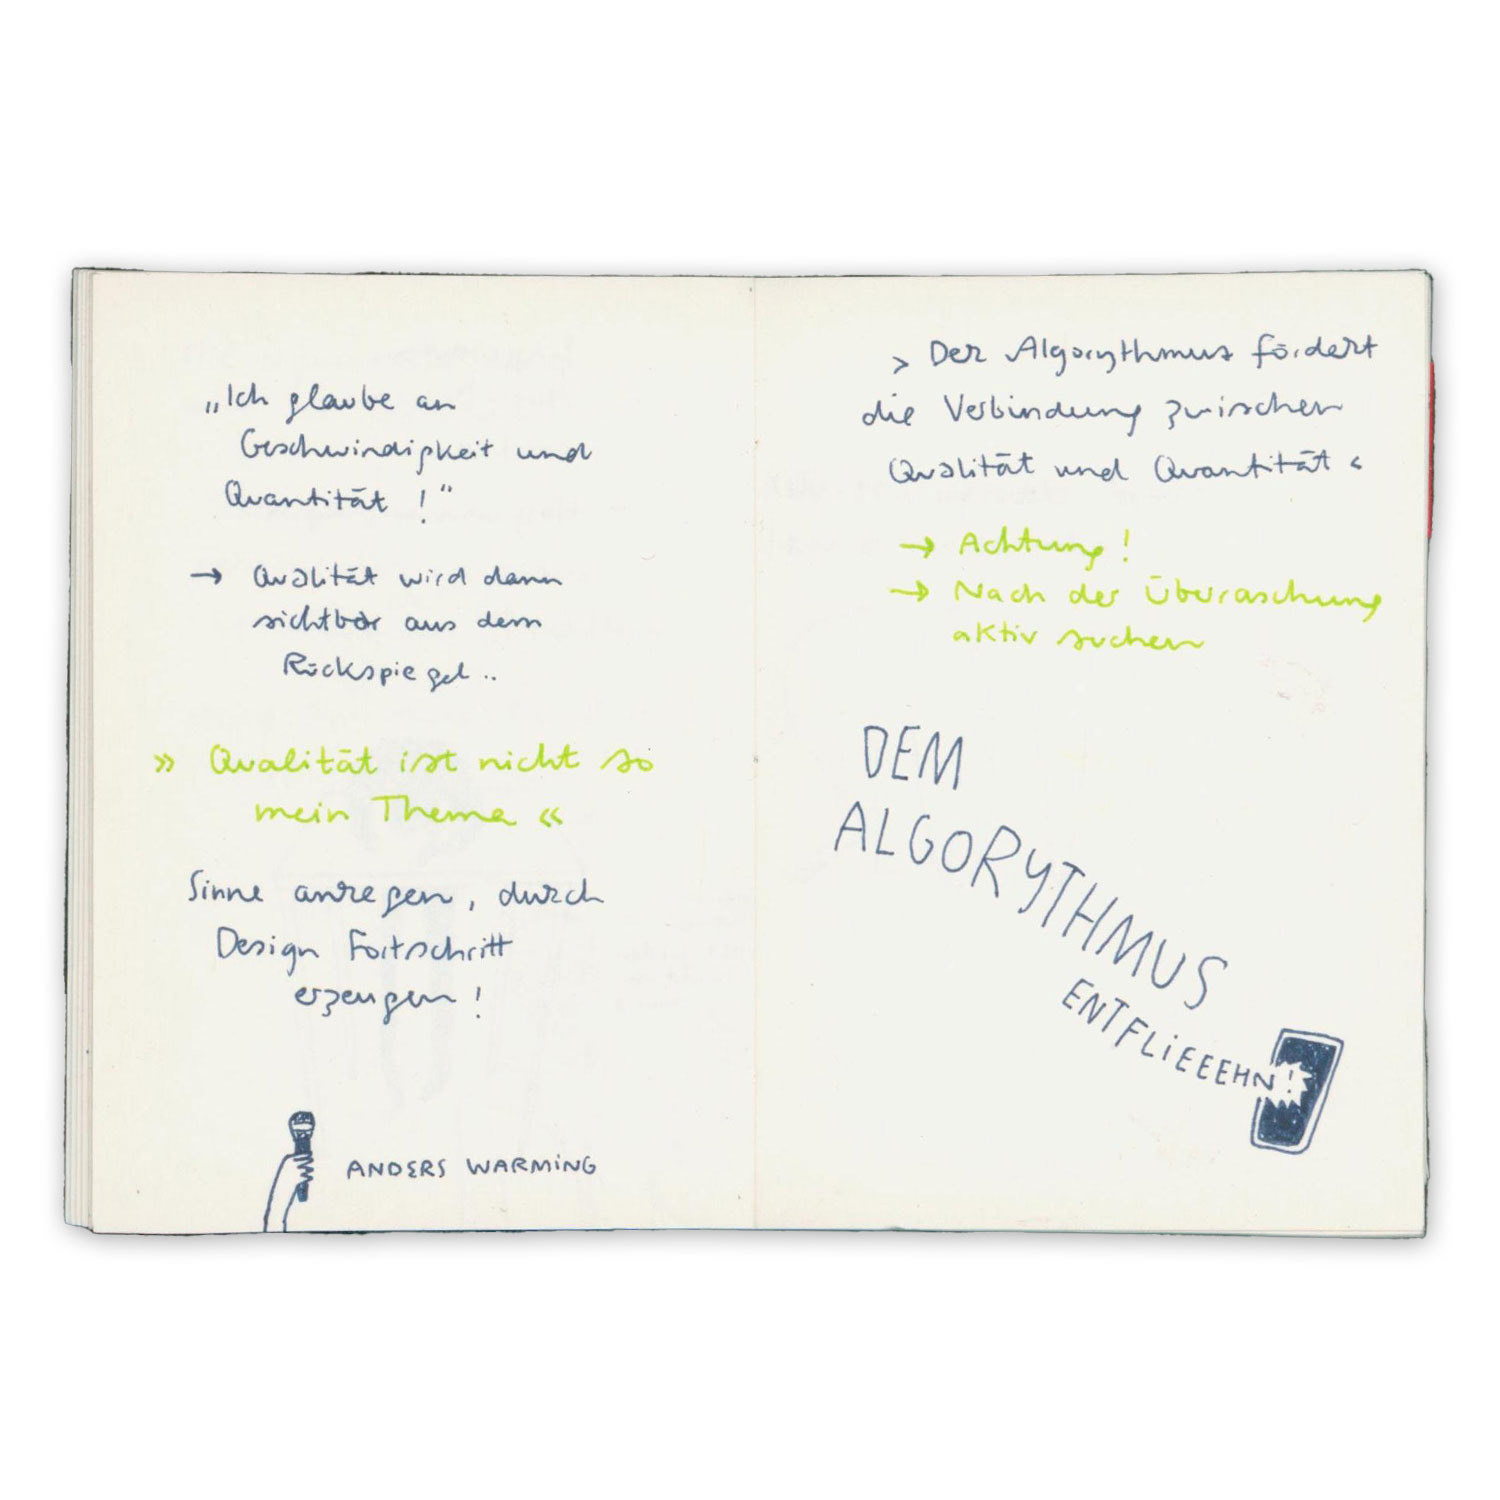 „Ich glaube an
Geschwindigkeit und
Quantität !“
→ Qualität wird dann
sichtbar aus dem
Rückspiegel..
» Qualität ist nicht so
mein Thema «
Sinne anregen, durch
Design Fortschritt
erzeugen !
ANDERS WARMING
> Der Algorythmus fördert
die Verbindung zwischen
Qualität und Quantität <
→ Achtung !
→ Nach der Überaschung
aktiv suchen
DEM
ALGORYTHMUS
ENTFLIEEEHN !